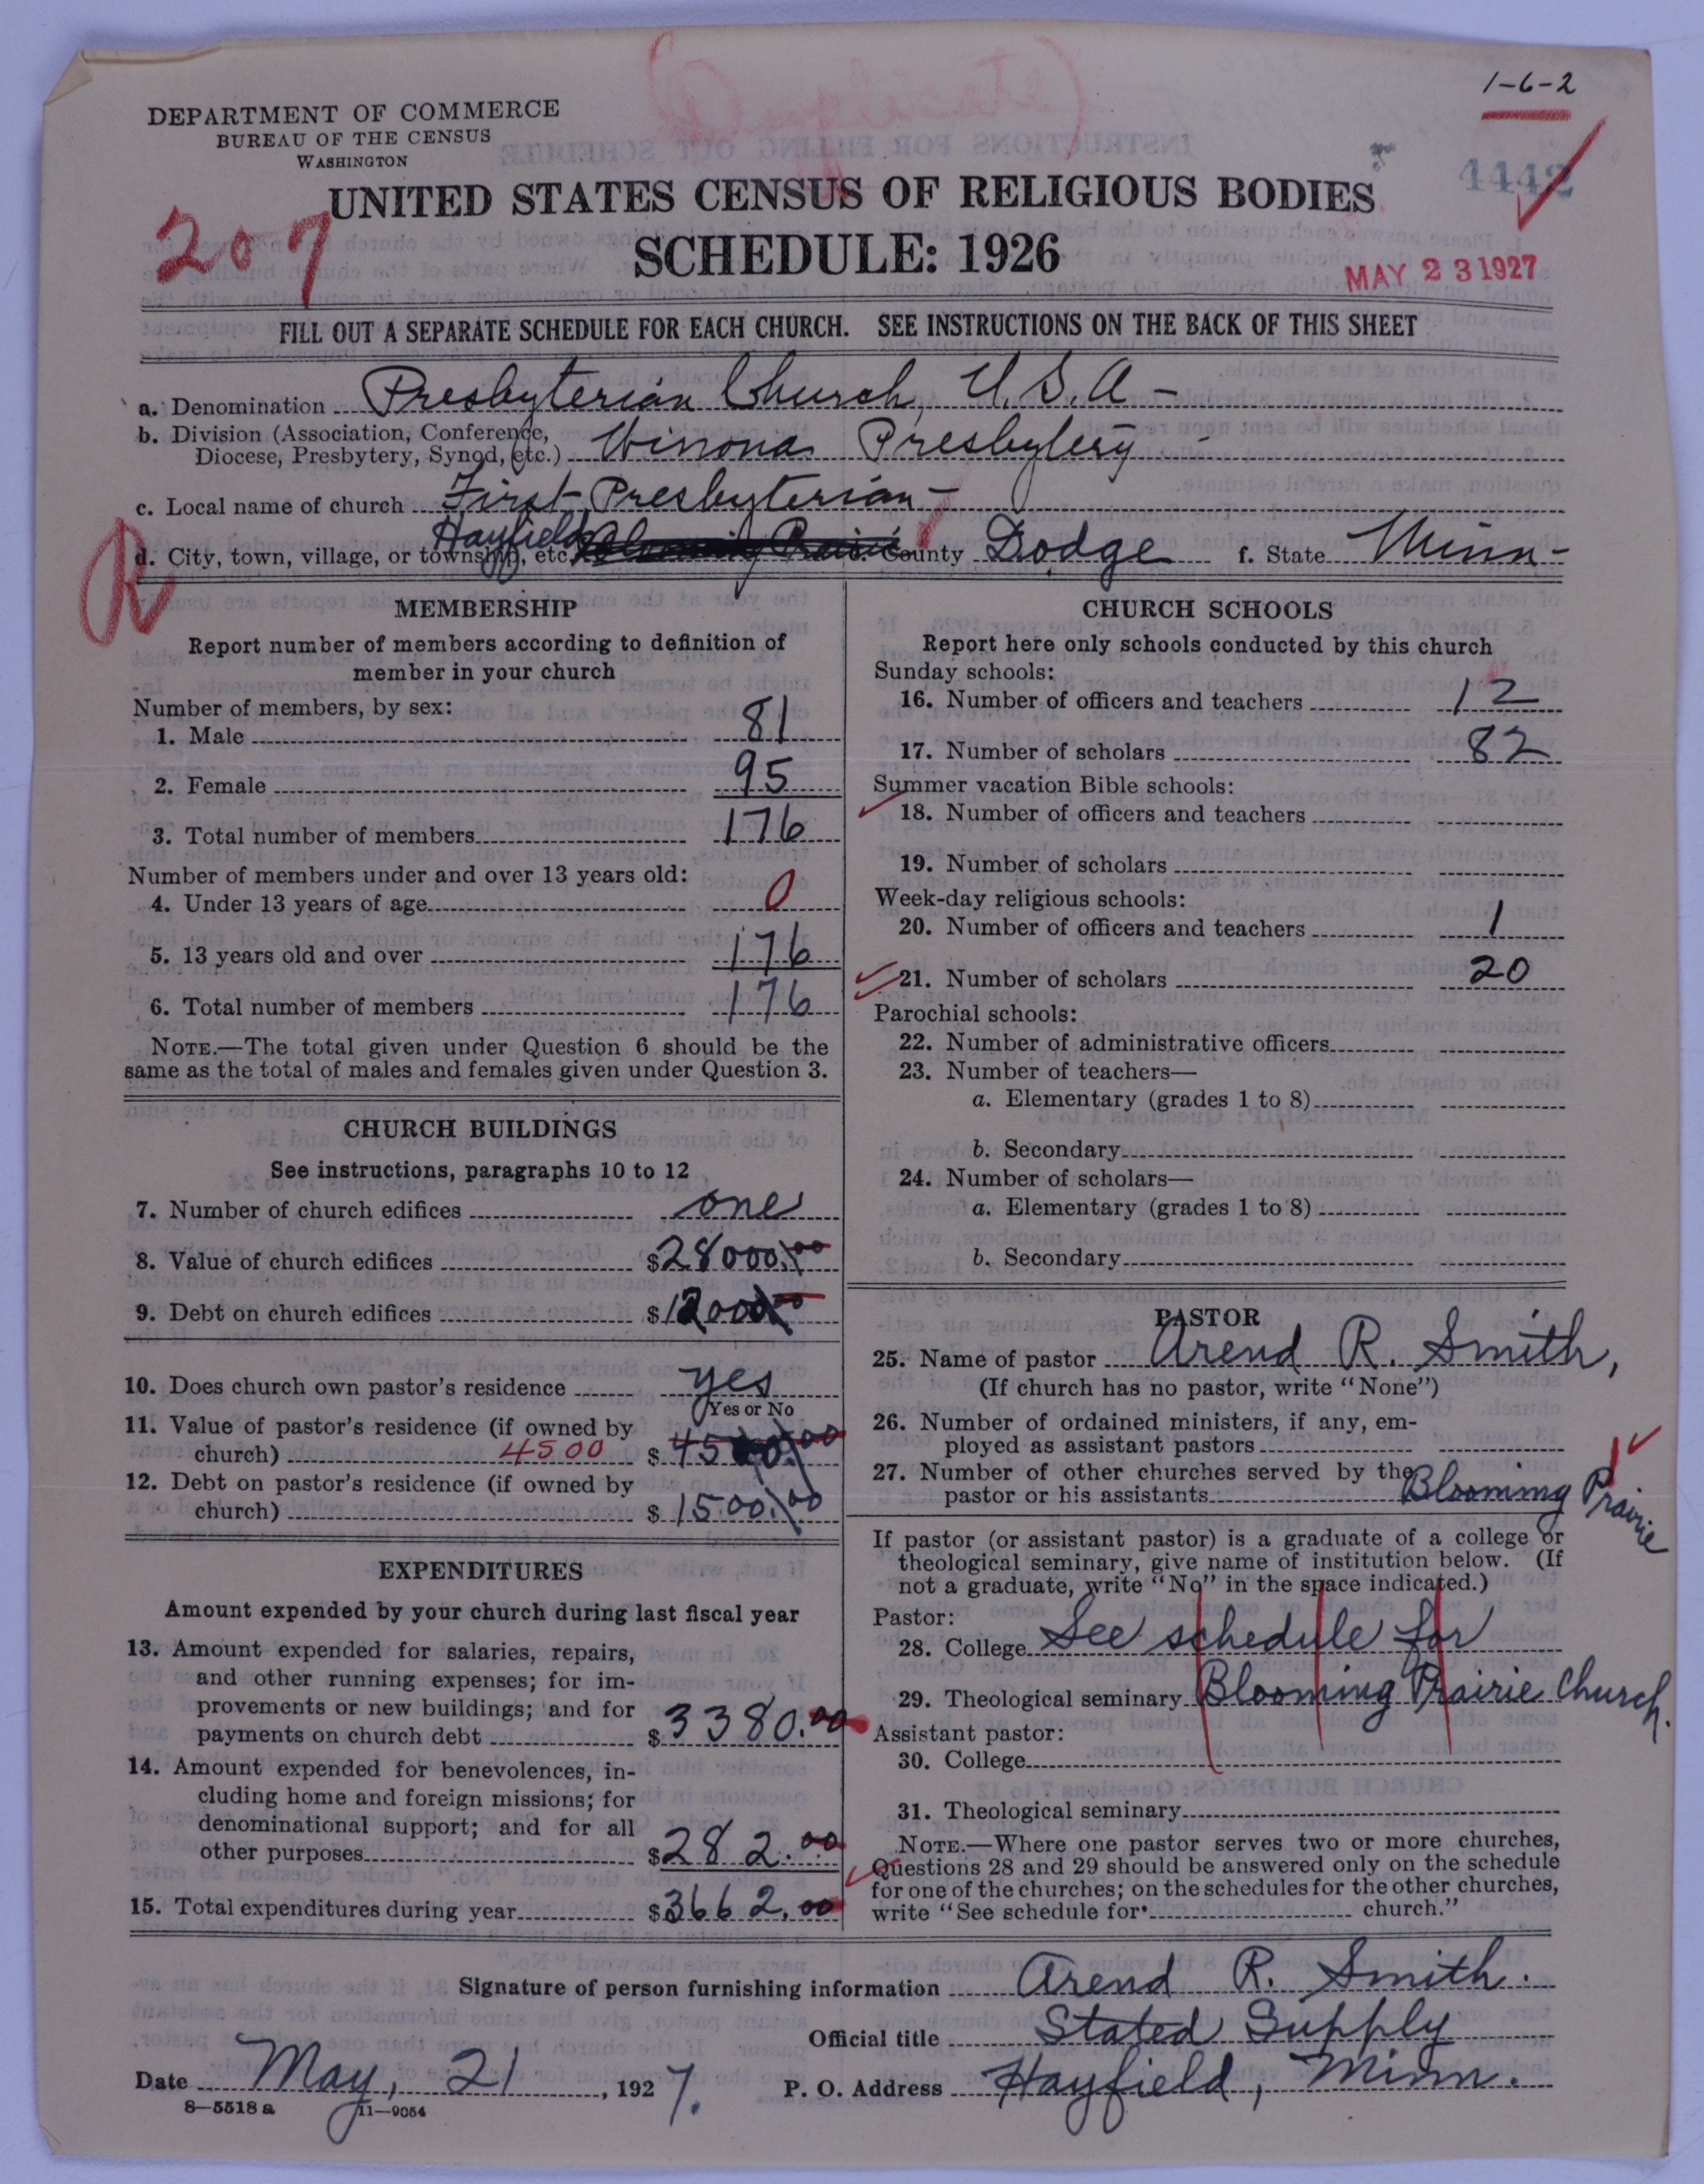 1-6-2
DEPARTMENT OF COMMERCE
BUREAU OF THE CENSUS
WASHINGTON
4442
UNITED STATES CENSUS OF RELIGIOUS BODIES
207
SCHEDULE: 1926
MAY 23 1927
FILL OUT A SEPARATE SCHEDULE FOR EACH CHURCH. SEE INSTRUCTIONS ON THE BACK OF THIS SHEET
a. Denomination Presbyterian Church, U.S.A-
b. Division (Association, Conference,
Diocese, Presbytery, Synod, etc.) Winona Presbytery -
c. Local name of church First Presbyterian-
d. City, town, village, or township, etc. Hayfield Blooming Prairie e. County Dodge f. State Minn-
R
MEMBERSHIP
Report number of members according to definition of
member in your church
Number of members, by sex:
1. Male 81
2. Female 95
3. Total number of members 176
Number of members under and over 13 years old:
4. Under 13 years of age 0
5. 13 years old and over 176
6. Total number of members 176
NOTE.—The total given under Question 6 should be the
same as the total of males and females given under Question 3.
CHURCH BUILDINGS
See instructions, paragraphs 10 to 12
7. Number of church edifices one
8. Value of church edifices $28000.00
9. Debt on church edifices $12000.00
10. Does church own pastor's residence yes
Yes or No
11. Value of pastor's residence (if owned by
church) 4500 $4500.00
12. Debt on pastor's residence (if owned by
church) $1500.00
EXPENDITURES
Amount expended by your church during last fiscal year
13. Amount expended for salaries, repairs,
and other running expenses; for im-
provements or new buildings; and for
payments on church debt $3380.00
14. Amount expended for benevolences, in-
cluding home and foreign missions; for
denominational support; and for all
other purposes $282.00
15. Total expenditures during year $3662.00
CHURCH SCHOOLS
Report here only schools conducted by this church
Sunday schools:
16. Number of officers and teachers 12
17. Number of scholars 82
Summer vacation Bible schools:
18. Number of officers and teachers
19. Number of scholars
Week-day religious schools:
20. Number of officers and teachers 1
21. Number of scholars 20
Parochial schools:
22. Number of administrative officers
23. Number of teachers—
a. Elementary (grades 1 to 8)
b. Secondary
24. Number of scholars—
a. Elementary (grades 1 to 8)
b. Secondary
PASTOR
25. Name of pastor Arend R. Smith,
(If church has no pastor, write "None")
26. Number of ordained ministers, if any, em-
ployed as assistant pastors
27. Number of other churches served by the
pastor or his assistants Blooming Prairie 1
If pastor (or assistant pastor) is a graduate of a college or
theological seminary, give name of institution below. (If
not a graduate, write "No" in the space indicated.)
Pastor:
28. College See schedule for
29. Theological seminary Blooming Prairie Church.
Assistant pastor:
30. College
31. Theological seminary
NOTE.—Where one pastor serves two or more churches,
Questions 28 and 29 should be answered only on the schedule
for one of the churches; on the schedules for the other churches,
write "See schedule for church."
Signature of person furnishing information Arend R. Smith.
Official title Stated Supply
Date May, 21, 1927. P. O. Address Hayfield, Minn.
8—5518 a 11—9054